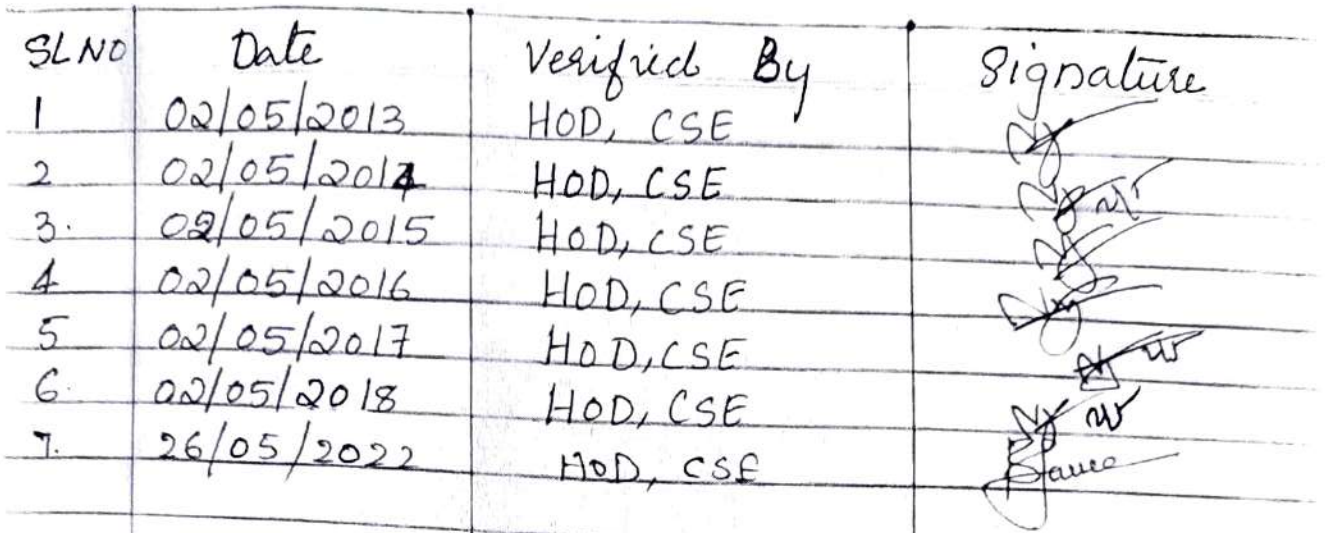 SLNO Date Verified By Signature
1 02/05/2013 HOD, CSE
2 02/05/2014 HOD, CSE
3. 02/05/2015 HOD, CSE
4 02/05/2016 HOD, CSE
5 02/05/2017 HOD, CSE
6. 02/05/2018 HOD, CSE
7. 26/05/2022 HOD, CSE